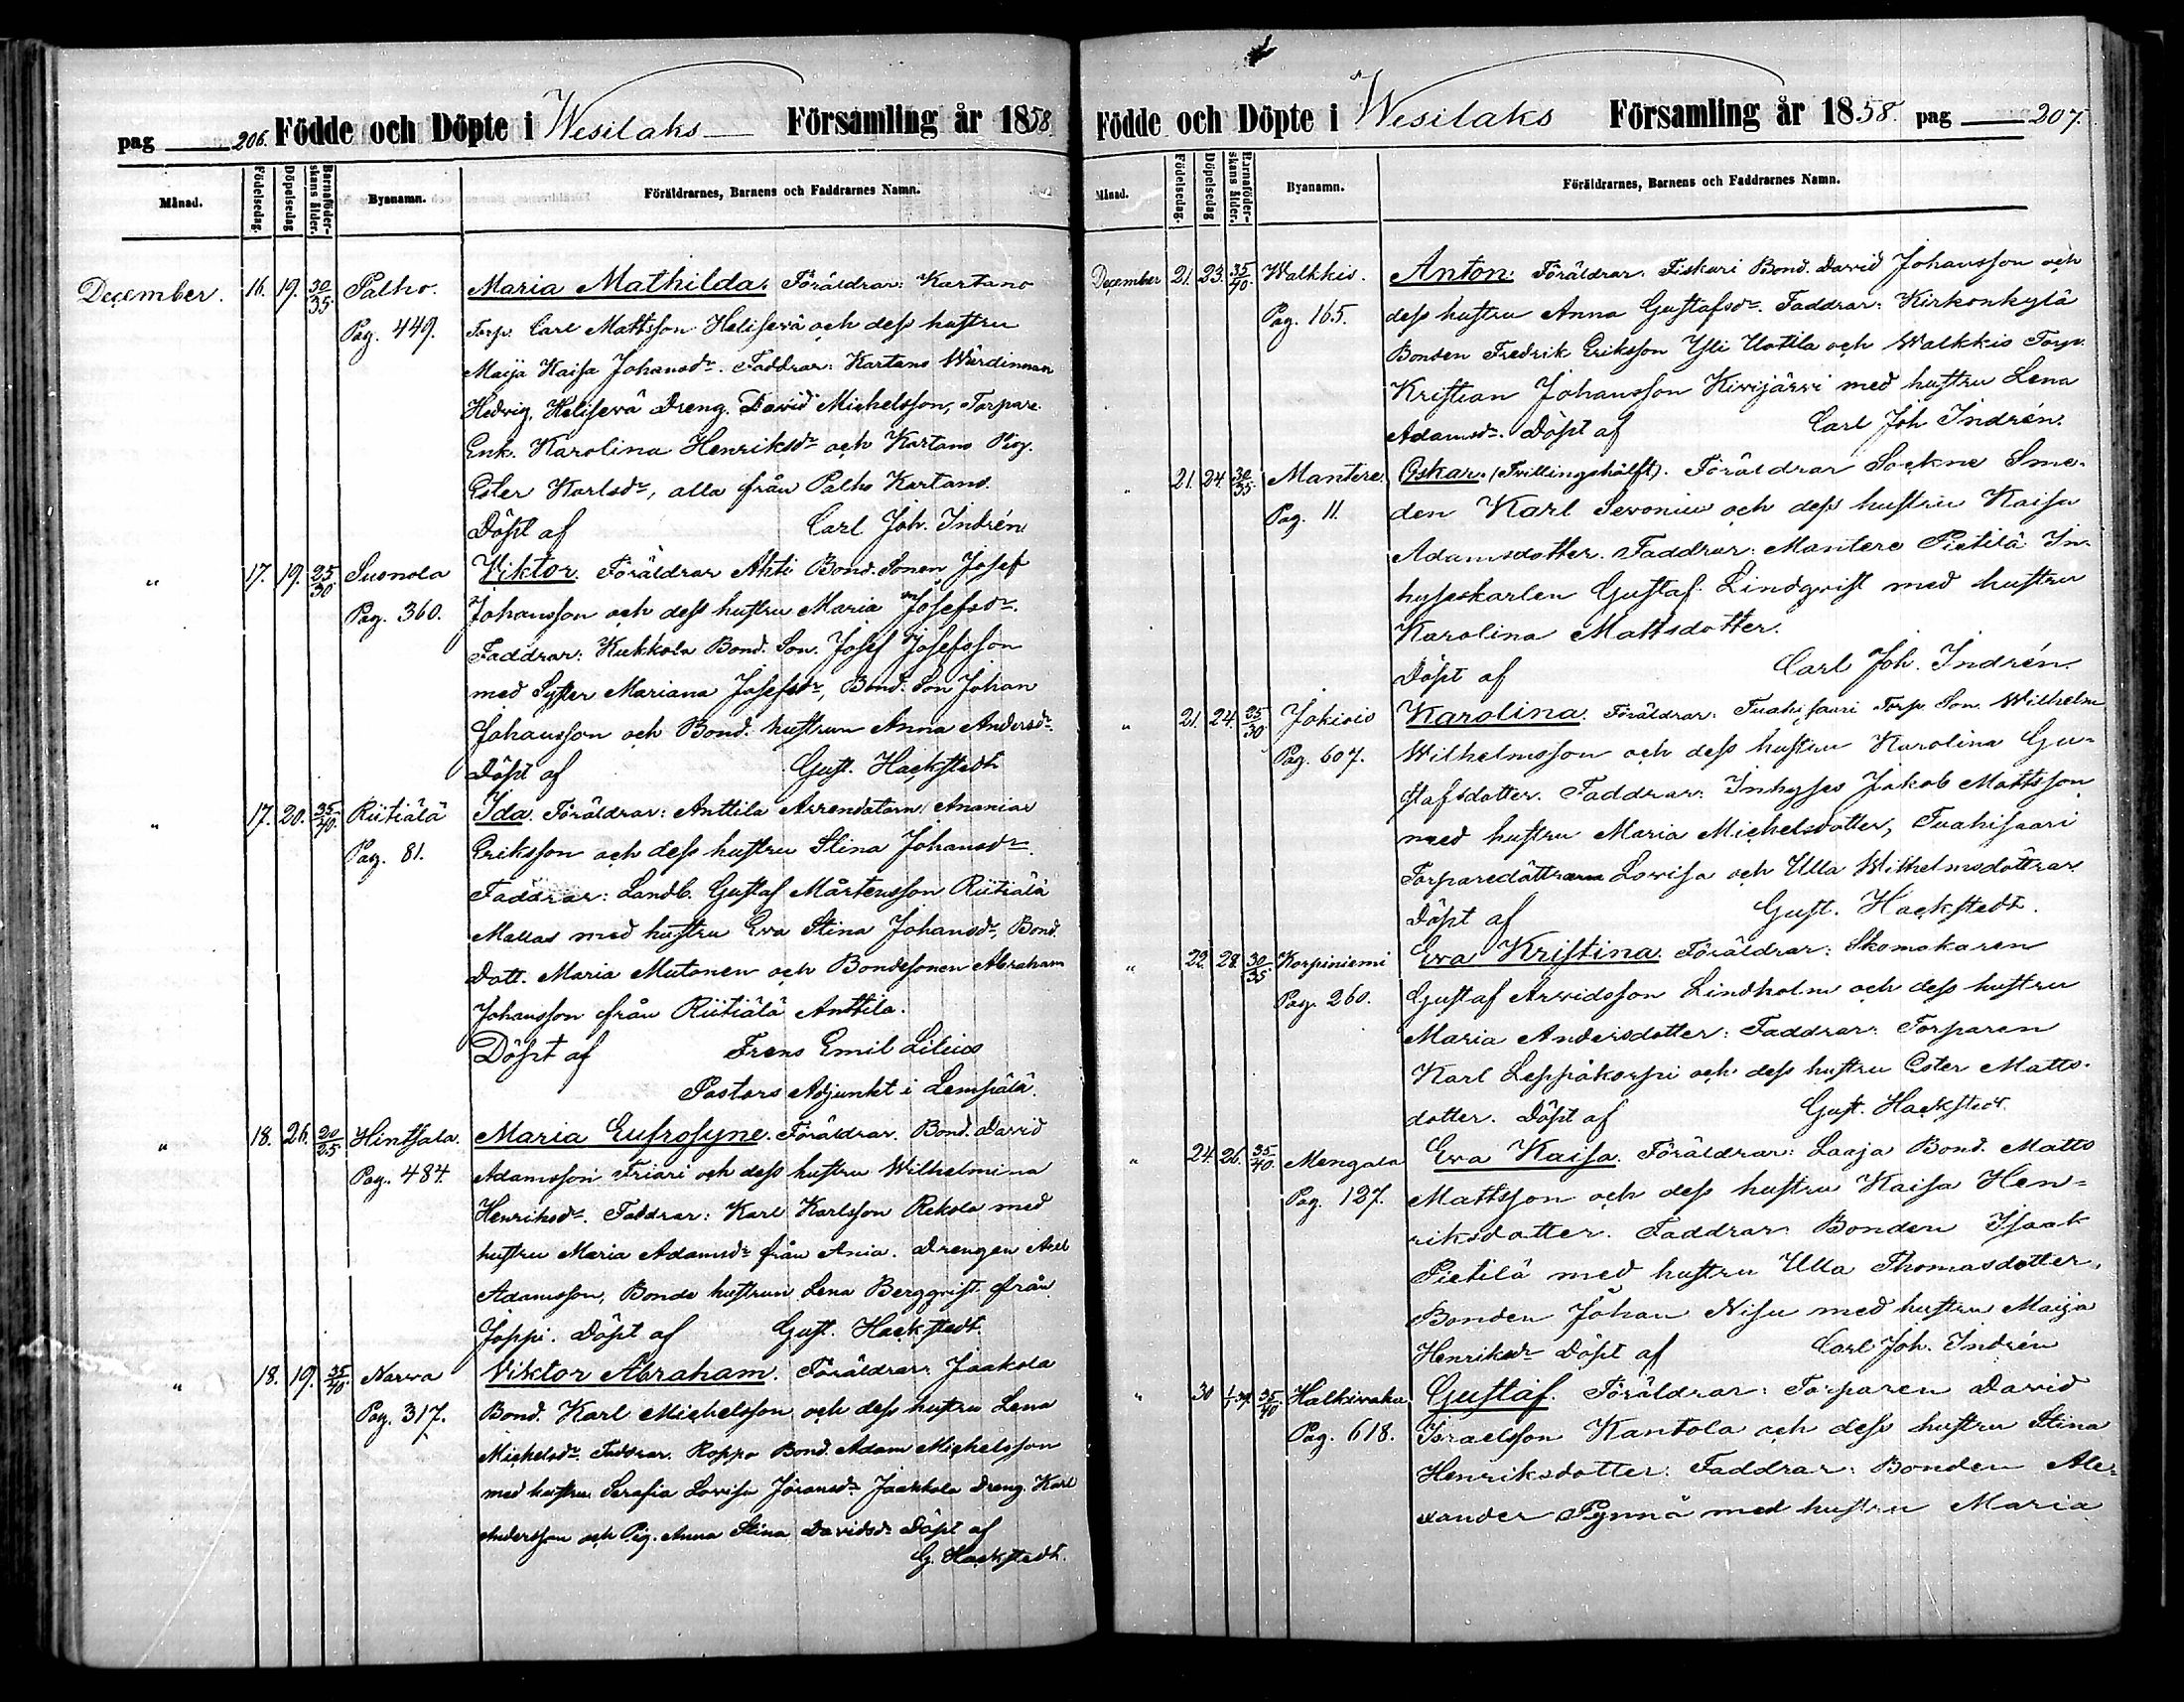 pag 206. Födde och Döpte i Wesilaks Församling år 1858.
Månad. Födelsedag. Döpelsedag Barnaföderskans ålder. Byanamn. Föräldrarnes, Barnens och Faddrarnes Namn.
December. 16. 19. 30/35 Palho. Maria Mathilda. Föräldrar: Kartano
Pag. 449. Torp. Carl Mattsson Helisevä och dess hustru
Maija Kaisa Johansdr. Faddrar: Kartano Wärdinnan
Hedvig, Helisevä Dreng. David Michelsson, Torpare
Enk. Karolina Henriksdr och Kartano Pig.
Ester Karlsdr, alla från Palho Kartano.
Döpt af Carl Joh. Indrén
" 17. 19. 25/30 Suonola Viktor. Föräldrar Ahti Bond. Sonen Josef
Pag. 360. Johansson och dess hustru Maria Josefsdr.
Faddrar: Kukkola Bond. Son. Josef Josefsson
med Syster Mariana Josefsdr, Bond. Son Johan
Johansson och Bond. hustrun Anna Andersdr.
Döpt af Gust. Hackstedt
" 17. 20. 35/40. Riitiälä Ida. Föräldrar: Anttila Arrendatorn Ananias
Pag. 81. Eriksson och dess hustru Stina Johansdr.
Faddrar: Landb. Gustaf Mårtensson Riitiälä
Mallas med hustru Eva Stina Johansdr, Bond.
Dott. Maria Mutonen och Bondesonen Abraham
Johansson från Riitiälä Anttila.
Döpt af Frans Emil Lilius
Pastors Adjunkt i Lempälä.
" 18. 26. 20/25 Hintsala. Maria Eufrosyne. Föräldrar. Bond. David
Pag. 484. Adamsson Friari och dess hustru Wilhelmina
Henriksdr. Faddrar: Karl Karlsson Rekola med
hustru Maria Adamsdr från Ania. Drengen Axel
Adamsson, Bonde hustrun Lena Bergqvist från
Joppi. Döpt af Gust. Hackstedt.
" 18. 19. 35/40 Narva Viktor Abraham. Föräldrar: Jaakola
Pag. 317. Bond. Karl Michelsson och dess hustru Lena
Michelsdr. Faddrar. Roppo Bond. Adam Michelsson
med hustru Serafia Lovisa Jöransdr Jaakkola Dreng. Karl
Andersson och Pig. Anna Stina Davidsdr Döpt af
G. Hackstedt.
Födde och Döpte i Wesilaks Församling år 1858. pag 207.
Månad. Födelsedag. Döpelsedag Barnaföderskans ålder. Byanamn. Föräldrarnes, Barnens och Faddrarnes Namn.
December 21. 23. 35/40. Walkkis. Anton. Föräldrar. Fiskari Bond. David Johansson och
Pag. 165. dess hustru Anna Gustafsdr. Faddrar: Kirkonkylä
Bonden Fredrik Eriksson Yli Uotila och Walkkis Torp.
Kristian Johansson Kivijärvi med hustru Lena
Adamsdr. Döpt af Carl Joh Indrén.
" 21. 24. 30/35 Mantere. Oskar. (Tvillingshälft). Föräldrar Sockne Sme-
Pag. 11. den Karl Severnius och dess hustru Kaisa
Adamsdotter. Faddrar: Mantere Pietilä In-
hysseskarlen Gustaf Lindqvist med hustru
Karolina Mattsdotter.
Döpt af Carl Joh. Indrén.
" 21. 24. 25/30 Jokiois Karolina. Föräldrar: Tuahisaari Torp. Son. Wilhelm
Pag. 607. Wilhelmsson och dess hustru Karolina Gu-
stafsdotter. Faddrar: Inhyses Jakob Mattsson
med hustru Maria Michelsdotter, Tuahisaari
Torparedöttrarna Lovisa och Ulla Wilhelmsdöttrar.
Döpt af Gust. Hackstedt.
" 22. 28. 30/35 Korpiniemi Eva Kristina. Föräldrar: Skomakaren
Pag. 260. Gustaf Arvidsson Lindholm och dess hustru
Maria Andersdotter: Faddrar: Torparen
Karl Leppäkorpi och dess hustru Ester Matts-
dotter. Döpt af Gust. Hackstedt.
" 24. 26. 35/40. Mengala Eva Kaisa. Föräldrar: Laaja Bond. Matts
Pag. 127. Mattsson och dess hustru Kaisa Hen-
riksdotter. Faddrar: Bonden Isaak
Pietilä med hustru Ulla Thomasdotter,
Bonden Johan Nisu med hustru Maija
Henriksdr Döpt af Carl Joh. Indrén
" 30 1/1 59. 35/40 Halkivaha Gustaf. Föräldrar: Torparen David
Pag. 618. Israelsson Kantola och dess hustru Stina
Henriksdotter. Faddrar: Bonden Ale-
xander Pynnä med hustru Maria